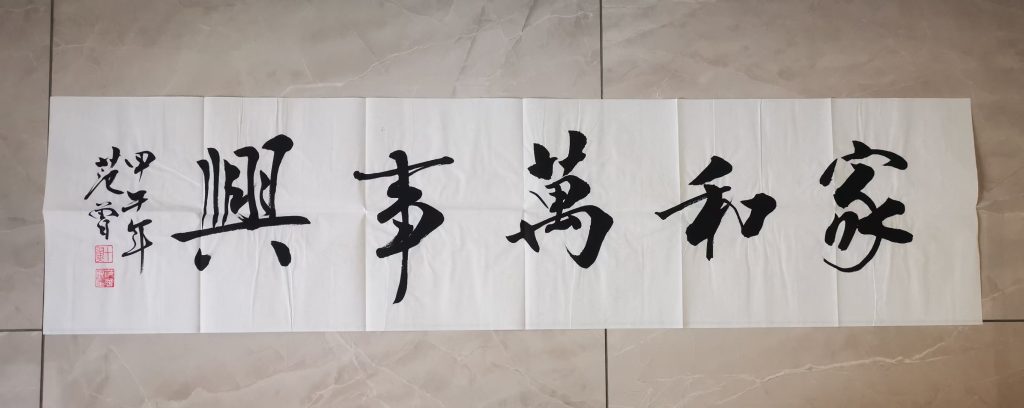 家和萬事興
甲午年
范曾